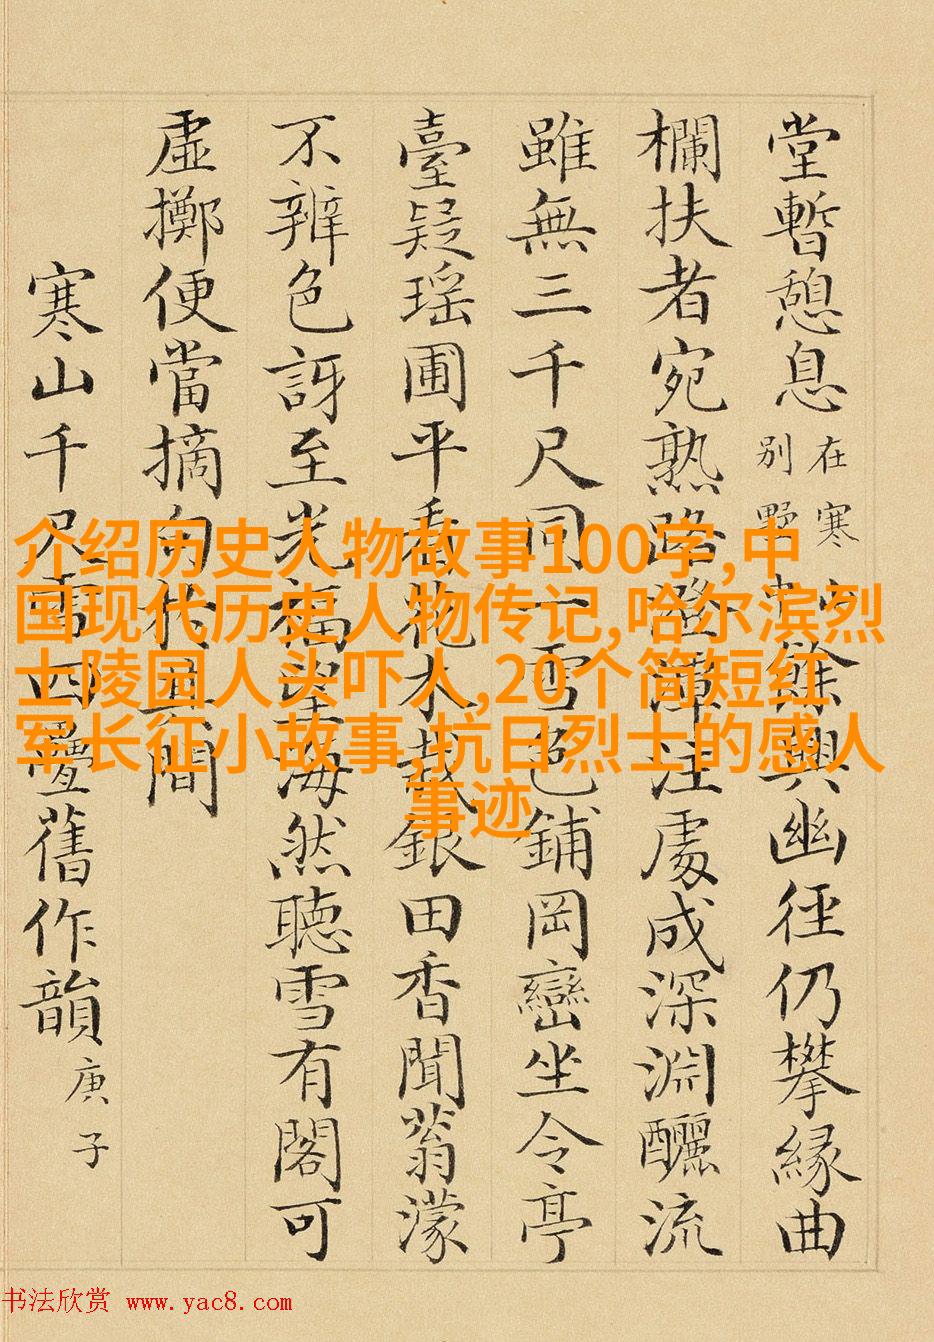 堂暫憩息
在寒
別野
餘興幽徑仍攀緣曲
欄扶者宛熟路潭注處成深淵釃流
雖無三千尺同一雪色鋪岡巒坐令亭
臺疑瑶圃平看花木栽銀田香聞蓊濛
不辨色訝至光福海然聽雪有閣可
虛擲便當摘句於其間
寒山千尺雪四疊舊作韻
庚子
介绍历史人物故事100字,中
国现代历史人物传记,哈尔滨烈
士陵园人头吓人,20个简短红
军长征小故事,抗日烈士的感人
事迹
书法欣赏 www.yac8.com